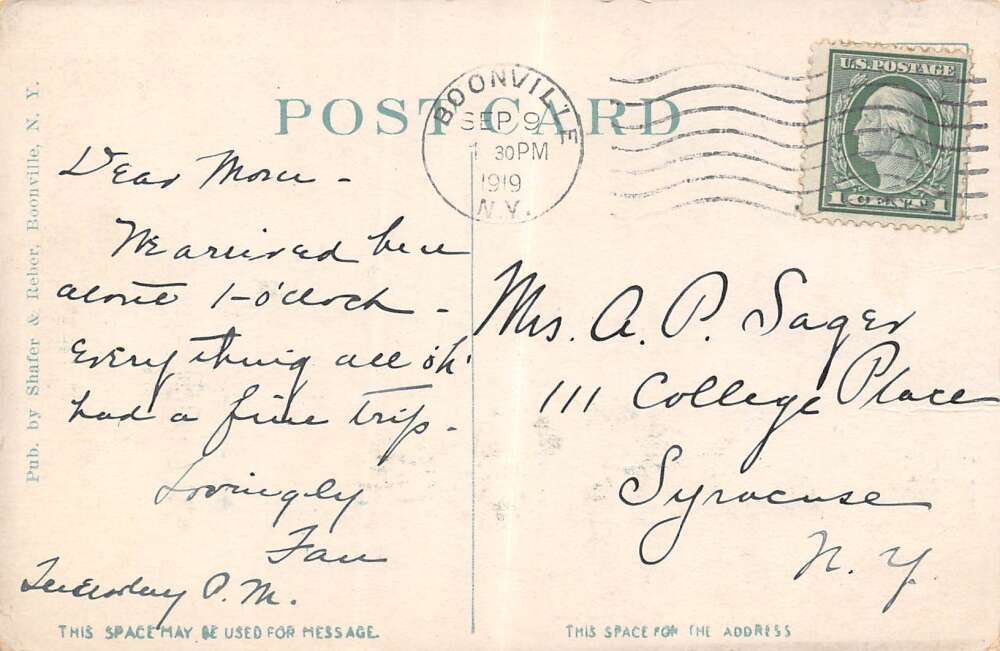 POST CARD
BOONVILLE
SEP 9
1 30PM
1919
N.Y.
U.S. POSTAGE
1 CENT 1
Pub. by Shafer & Reber, Boonville, N. Y.
Dear
We arrived here
about 1-o'clock -
Everything all ok'
had a fine trip -
Lovingly
Fan
Tuesday P.M.
Mrs. A. P. Sager
111 College Place
Syracuse
N. Y.
THIS SPACE MAY BE USED FOR MESSAGE.
THIS SPACE FOR THE ADDRESS